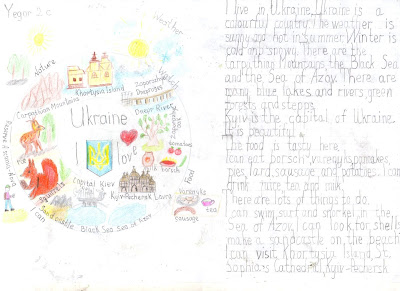 Yegor 2c
Nature
Weather
Khortytsia Island
Carpathian Mountains
Dnipro River
Ukraine
I love
tomatoes
borsch
Food
squirrels
capital Kyiv
Kyiv-Pechersk Lavra
Varenyks
sausage
tea
Sandcastle
Black Sea Sea of Azov
I can
I live in Ukraine. Ukraine is a
colourful country. The weather is
sunny and hot in summer. Winter is
cold and snowy. There are the
Mountains, the Black Sea
and the Sea of Azov. There are
many blue lakes and rivers, green
forests and stepps.
Kyiv is the capital of Ukraine.
It is beautiful.
The food is tasty here.
I can eat borsch, varenyks, pancakes,
pies, lard, sausage, and potatoes. I can
drink juice, tea and milk.
There are lots of things to do.
I can swim, surf and snorkel in the
Sea of Azov. I can look for shells,
make a sandcastle on the beach.
I can visit Khortytsia Island, St.
Sophia's Cathedral, Kyiv-Pechersk